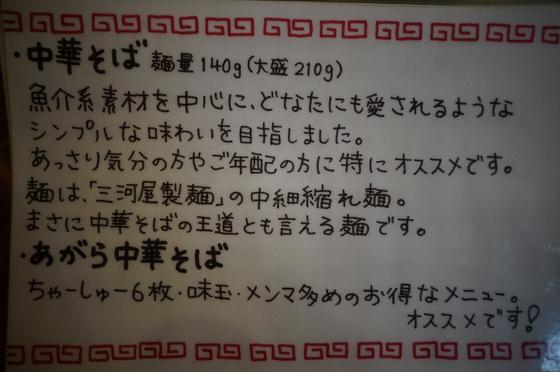 ・中華そば 麺量140g(大盛210g)
魚介系素材を中心に、どなたにも愛されるような
シンプルな味わいを目指しました。
あっさり気分の方やご年配の方に特にオススメです。
麺は、「三河屋製麺」の中細縮れ麺。
まさに中華そばの王道とも言える麺です。
・あがら中華そば
ちゃーしゅー6枚・味玉・メンマ多めのお得なメニュー。
オススメです!